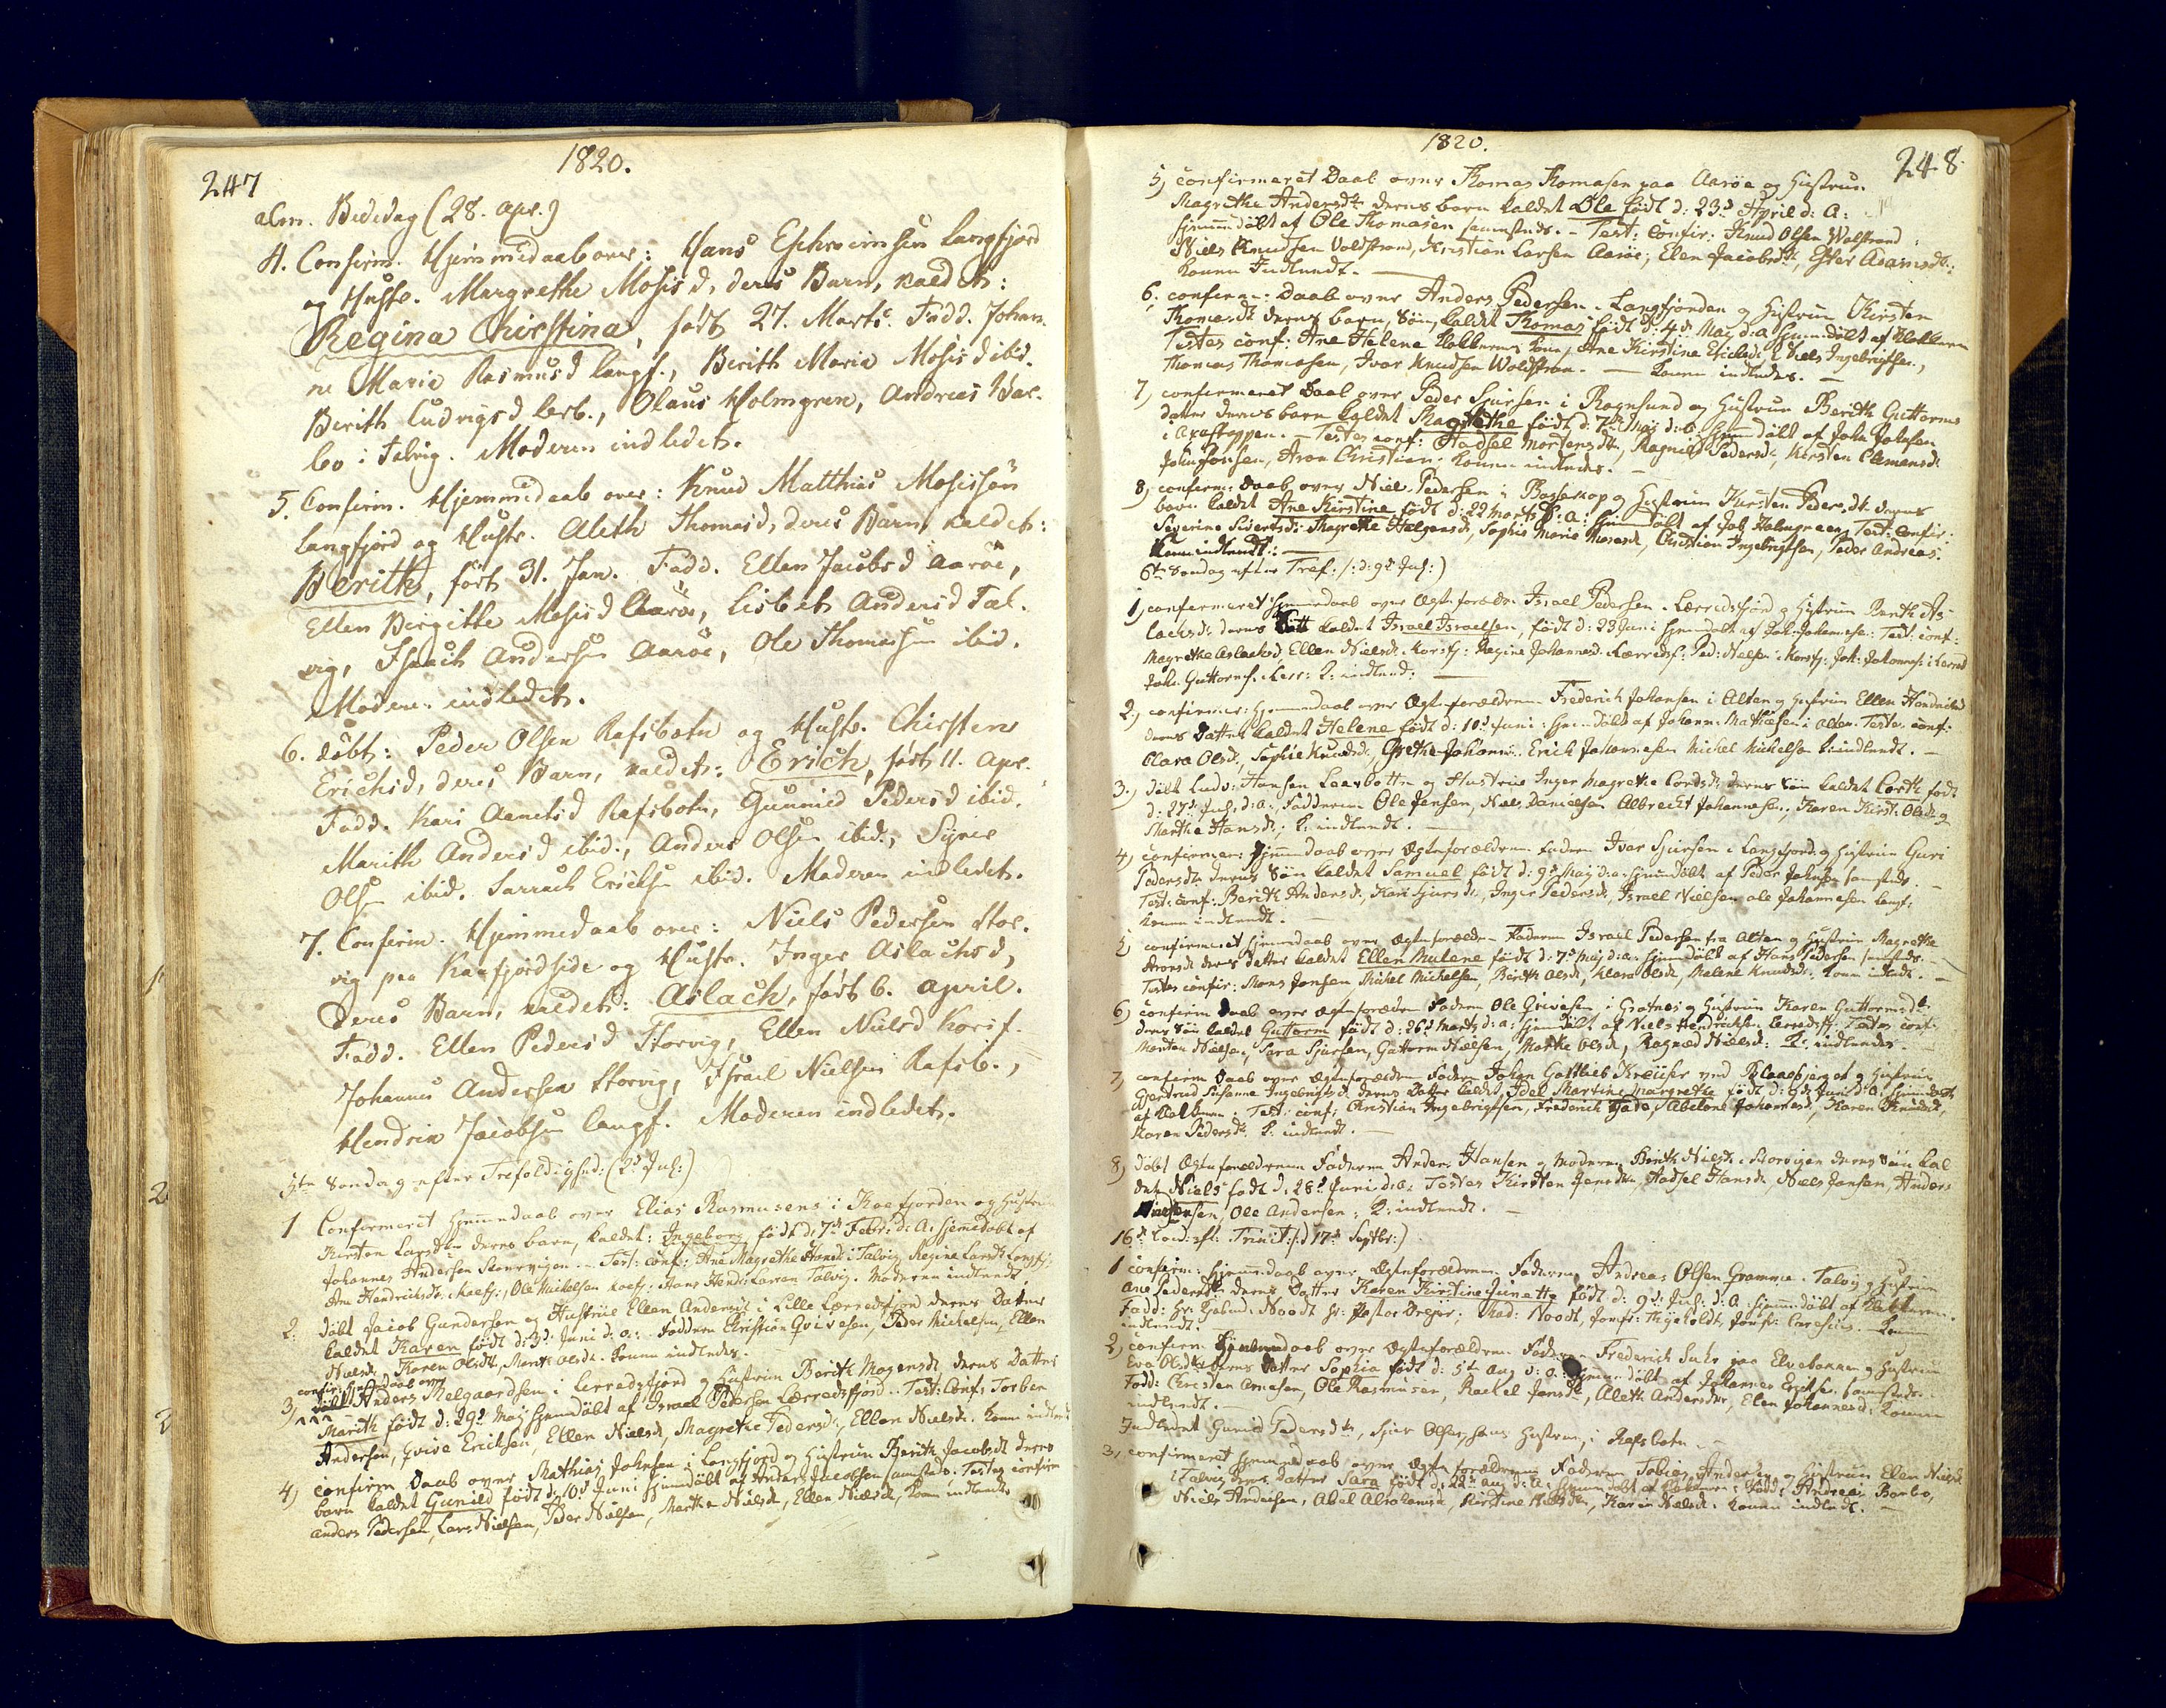 247
1820.
alm. Bededag (28. apr.)
4. Confirm. Hjemmedaab over: Hans Ephraimsen Langfjord
og Hustr. Margrethe Mosisd, deres Barn, kaldet:
Regina Chirstina, født 27. Marts. Fadd. Johan-
ne Maria Rasmusd Langf., Berith Maria Mosisd ibid.
Berith Ludvigsd Lerb., Olaus Holmgren, Andreas Bar-
bo i Talvig. Moderen indledet.
5. Confirm. Hjemmedaab over: Knud Matthias Mosissøn
Langfjord og Hustr. Aleth Thomasd, deres Barn, kaldet:
Berith, født 31. Jan. Fadd. Ellen Jacobsd Aarøe,
Ellen Birgitte Mosisd Aarøe, Lisbet Andersd Tal-
vig, Isaach Andersen Aarøe, Ole Thomassen ibid.
Moderen indledet.
6. døbt: Peder Olsen Rafsbotn og Hustr. Chirsten
Erichsd, deres Barn, kaldet: Erich, født 11. Apr.
Fadd. Kari Arntsd Rafsbotn, Gunnild Pedersd ibid.
Marith Andersd ibid., Anders Olsen ibid., Syver
Olsen ibid. Sarrach Erichsen ibid. Moderen indledet.
7. Confirm. Hjemmedaab over: Niels Pedersen Stor-
vig paa Kaafjordside og Hustr. Inger Aslachsd,
deres Barn, kaldet: Aslach, født 6. April.
Fadd. Ellen Pedersd Storvig, Ellen Nielsd Korsf.
Johannes Andersen Storvig, Israel Nielsen Rafsb.,
Hendrik Jacobsen Langf. Moderen indledet.
5te Søndag efter Trefoldighed: (2d Julj:)
1 Confirmeret Hjemmedaab over Elias Rasmusens i Kaafjorden og Hustrue
Kirsten Larsdtr deres barn, kaldet: Ingeborg født d: 7d Febr: d: A: hjemedøbt af
Johannes Andersen Storvigen. - Test: conf: Ane Magrethe i Talvig, Regine Larsdt Langfj:
Ane Hendriksdt: Kaafj:, Ole Mikkelsen Kaafj: Hans Hend: Larsen Talvig. Moderen indledt.
2. døbt Jacob Gundersen og Hustrue Ellen Andersdt i Lille Lerredsfjord deres Datter
kaldet Karen født d: 3d Juni d: a: Faddere Christian Qvivesen, Peder Michelsen, Ellen
Nielsd, Karen Olsdt, Marit Olsd. Konen indledes.
confir: Hjemdaab over
3, Anders Melgaardsen i Lerredsfjord og Hustrue Berith Mogensdt deres Datter
Marith født d: 29d May hjemdøbt af Israel Pedersen Lerredsfjord. Test: Conf: Torben
Andersen, Qvive Erichsen, Ellen Nielsd, Magrethe Pedersd, Ellen Nielsd. Konen indledt
4, confirm Daab over Mathias Johnsen i Langfjord og Hustrue Berith Jacobsdt deres
barn kaldet Gunild født d: 10d Juni hjemdøbt af Anders Jacobsen samsteds. Testes confirm
Anders Pedersen, Lars Nielsen, Peder Nielsen, Marthe Nielsd, Ellen Nielsd, Konen indledt
1820.
248.
5, confirmeret Daab over Thomas Thomasen paa Aarøe og Hustrue
Magrethe Andersdtr deres barn kaldet Ole født d: 23d April d: A:
hjemdøbt af Ole Thomasen sammesteds. - Test: Confir: Knud Olsen Wolstrand
Niels Knudsen Voldstrand, Kristian Larsen Aarøe, Elen Jacobsdt, Ester Adamsdt:
Konen Indledt. -
6. confirm: Daab over Anders Pedersen Langfjorden og Hustrue Kirsten
Thomasdt deres barn, Søn, kaldet Thomas født d: 4d May d: a hjemdøbt af Klokkeren
Testes conf: Ane Helene Klokkerens kone, Ane Kirstine Erichsd, Niels Ingebrigtsen,
Thomas Thomasen, Ivar Knudsen Woldstran. - Konen indledes. -
7, confirmeret Daab over Peder Sjursen i Rognsund og Hustrue Berith Guttorms
datter deres barn kaldet Magrethe født d: 7d May d: a: hjemdøbt af John Johnsen
i . - Testes conf: Hadsel Mortensdtr, Ragnild Pedersd, Kirsten Clemensd
John Jonsen, Aron Christian: Konen indledes. -
8, confirm: Daab over Niels Pedersen i Bossekop og Hustrue Kirsten Peders.dt deres
barn kaldet Ane Kirstine født d: 22 Marts d: a: hjemdøbt af Joh Holmgreen Test: Confir:
Severine Sivertsd: Magrethe Helgensd, Sophie Marie , Christian Ingebrigtsen, Peder Andreas:
Konen indledt: -
6te Søndag efter Tref: (: d: 9d Julj:)
1, confirmeret Hjemmedaab over Ægteforældre Israel Pedersen Lerredsfjord og Hustrue Berith As-
lachsd: deres kaldet Israel Israelsen, født d: 23 Juni hjemdøbt af Joh: Johannesen: Test: conf:
Magrethe Aslachsd Ellen Nielsd: Korsfj: Regine Johannesd. Lerredsf: Ped: Nielsen i Korsfj: Joh: Johannes: i Lerred
Joh: Guttorms: Lerr: K: indledt: -
2, confirmer: Hjemmedaab over Ægteforældrene Frederich Johansen i Alten og Hustrue Ellen Hendriksd
deres Datter kaldet Helene født d: 10d Juni: hjemdøbt af Johann: Mathisen i Alten. Teste: conf:
Clara Olsd, Sophie Knudsd, Grethe Johannes. Erich Johannesen Michel Michelsen K: indledt. -
3., døbt Ludv: Hansen Leerbotten og Hustrue Inger Magrethe Cordsd: deres Søn kaldet Corth født
d: 27d Julj: d: a:, Fadderne Ole Jensen, Niels Danielsen Albrecht Johannesen, Karen Kirst: Olsd: og
Marthe Hansd:; K: indledt. -
4, confirmer: Hjemmedaab over Ægteforældrene Faderen Ivar Sjursen i Langfjord og Hustrue Guri
Pedersdtr deres Søn kaldet Samuel født d: 9d May d: a: hjemdøbt af Peder Johnsen samsteds. -
Test: conf: Berith Andersd:, Kari Sjursd:, Inger Pedersd:, Israel Nielsen ole Johannesen Langf:
Konen indledt.
5, confirmeret Hjemmedaab over Ægteforældre Faderen Israel Pedersen fra Alten og Hustrue Magrethe
Aronsd: deres Datter kaldet Ellen Malene født d: 7d Maj d: a: hjemdøbt af Hans Pedersen samsteds. -
Testes confir: Mons Jonsen Michel Michelsen, Berith Olsd, Klara Olsd, Malene Knudsd. Konen indledt. -
6, confirm Daab over Ægteforældre Faderen Ole Qvivesen i Grøtnes og Hustrue Karen Guttormsdtr
deres Søn kaldet Guttorm født d: 26d Marts d: a: hjemdøbt af Niels Hendrichsen Lerredsfj: Testes conf:
Morten Nielsen, Sara Sjursen, Guttorm Nielsen, Marthe Olsd, Ragned Nielsd: K: indledes.
7, confirm Daab over Ægteforældre Faderen Johan Gottlieb Kreiiser ved Klaaebjerget og Hustrue
Giertrud Susanne Ingebrigtsd deres Datter kaldet Idel Martine Margrethe født d: 9d Juni d: a: hjemdøbt
af Faderen: Test: conf: Christian Ingebrigtsen, Frederich Gade, Abelone Johannesd, Karen Knudsd,
Karen Pedersd: K: indledt. -
8, døbt Ægteforældrene Faderen Anders Hansen og Moderen Berith Nielsd: i Storvigen deres Søn kal-
det Niels født d: 28d Juni d: a: Testes Kirsten Jensdtr, Hadsel Hansd: Niels Jonsen, Anders
, Ole Andersen; K: indledt. -
16d Sønd: eft: Trinit: (: d 17d Septbr:)
1 confirm: Hjemmedaab over Ægteforældrene Faderen, Andreas Olsen Gramme i Talvig og Hustrue
Ane Pedersdtr deres Datter Karen Kirstine født d: 9d Julj: d: A: hjemdøbt af Klokkeren.
Fadd: Hr Noodt Hr Pastor Dreyer; Mad: Noodt, Jomfr: , Jomfr: . Konen
indledt.
2, confirm: Hjemmedaab over Ægteforældrene Faderen Frederich Suhr paa Elvebakken og Hustrue
Eva Olsdtr deres Datter Sophia født d: 5d Aug d: a: hjemdøbt af Johannes Erichs: samsteds.
Fadd: Christen Arnesen, Ole Rasmusen, Rachel Jonsdtr, Aleth Andersdtr, Elen Johannesd: Konen
indledt. -
Indledet Gunild Pedersdtr, Sjur Olsens Hans Hustrue, i Rafsbotn. -
3, confirmeret Hjemmedaab over Ægteforældrene Faderen Tobias Andersen og Hustrue Elen Nielsd
i Talvig deres Datter Sara født d: 22d Aug d: A: hjemdøbt af Klokkeren: Fadd: Andreas Barbo,
Niels Andersen, Abel Abrahamsd, Kirstine Nielsdtr, Karen Nielsd: Konen indledt. -